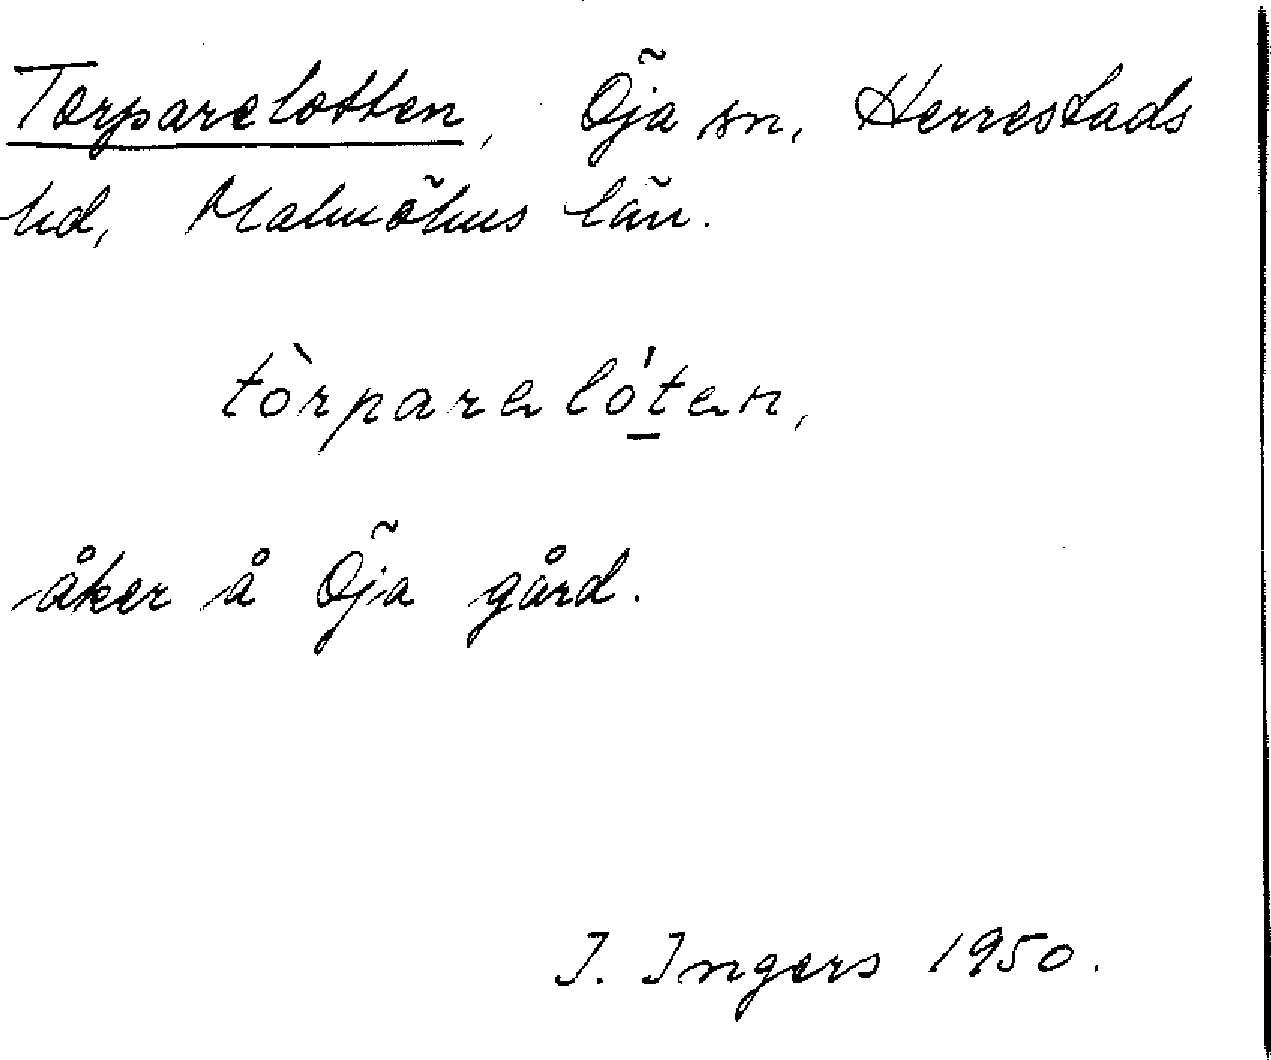 Torparelotten, Öja sn, Herrestads
hd, Malmöhus län.
tòrparelóten,
åker å Öja gård.
I. Ingers 1950.